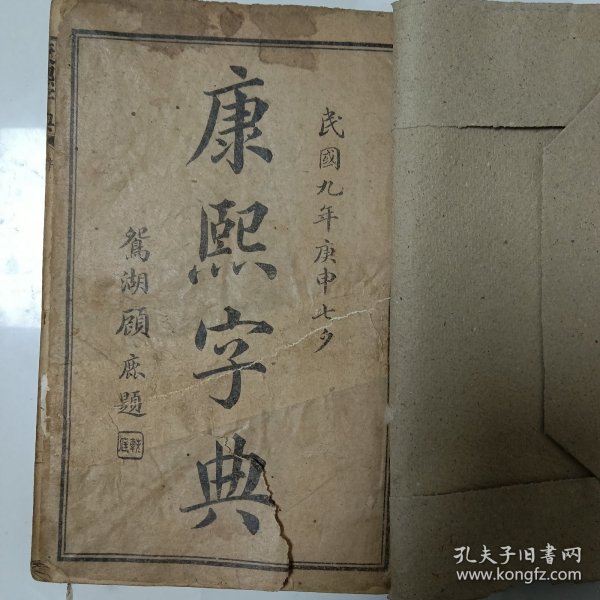 民國九年庚申七夕
康熙字典
鴛湖顧鹿題
孔夫子旧書网
www.kongfz.com